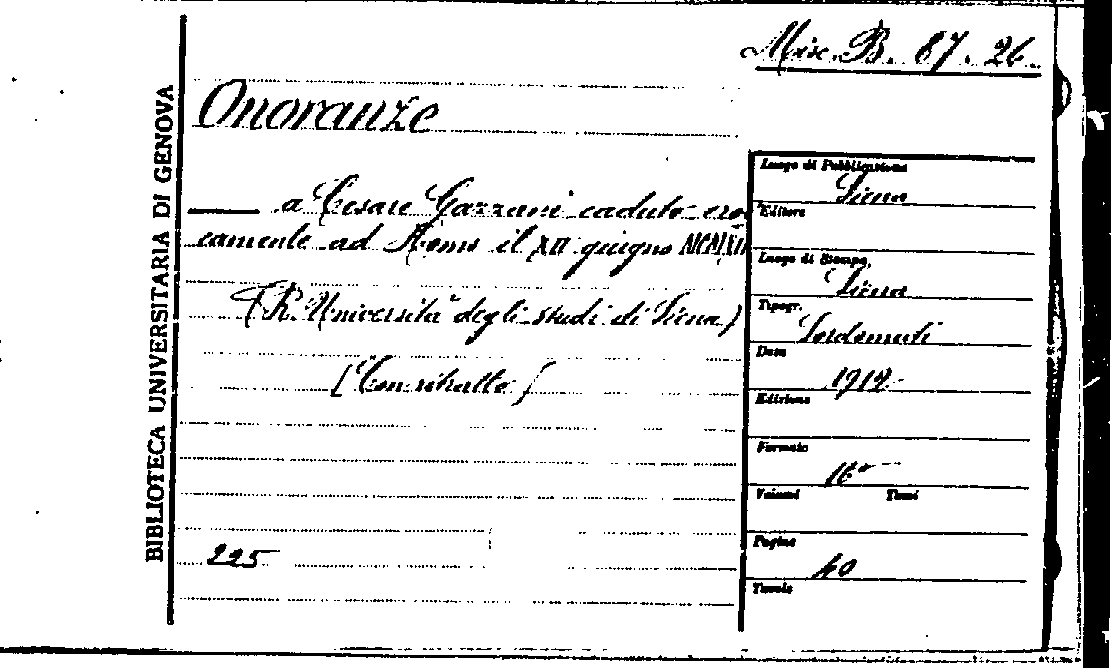 BIBLIOTECA UNIVERSITARIA DI GENOVA
Misc. B. 87. 26.
Onoranze
a Cesare Gazzani caduto eroi
camente ad Homs il XII giugno MCMXII
(R. Università degli studi di Siena)
[Con ritratto]
225
Luogo di Pubblicazione
Siena
Editore
Luogo di Stampa
Siena
Tipogr.
Sordomuti
Data
1912
Edizione
Formato
16°
Volumi Tomi
Pagine
40
Tavole